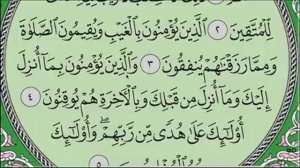 لِّلْمُتَّقِينَ ٢ ٱلَّذِينَ يُؤْمِنُونَ بِٱلْغَيْبِ وَيُقِيمُونَ ٱلصَّلَوٰةَ
وَمِمَّا رَزَقْنَٰهُمْ يُنفِقُونَ ٣ وَٱلَّذِينَ يُؤْمِنُونَ بِمَآ أُنزِلَ
إِلَيْكَ وَمَآ أُنزِلَ مِن قَبْلِكَ وَبِٱلْـَٔاخِرَةِ هُمْ يُوقِنُونَ ٤
أُو۟لَٰٓئِكَ عَلَىٰ هُدًى مِّن رَّبِّهِمْ ۖ وَأُو۟لَٰٓئِكَ
٥